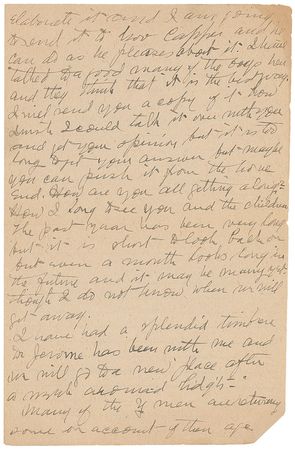 elaborate it and I am going
to send it to Gov Capper and he
can do as he pleases about it. I have
talked to a good many of the boys here
and they think that it is the best way.
I will send you a copy of it now
I wish I could talk it over with you
and get your opinion but it is too
long to get your answer but maybe
you can push it from the home
end. How are you all getting along?
How I long to see you and the children
The past year has been very long
but it is short to look back on
but even a month looks long in
the future and it may be many yet
though I do not know when we will
get away.
I have had a splendid time here
Dr Jerome has been with me and
we will go to a new place after
a week around tonight
Many of the Y men are returning
some on account of their age